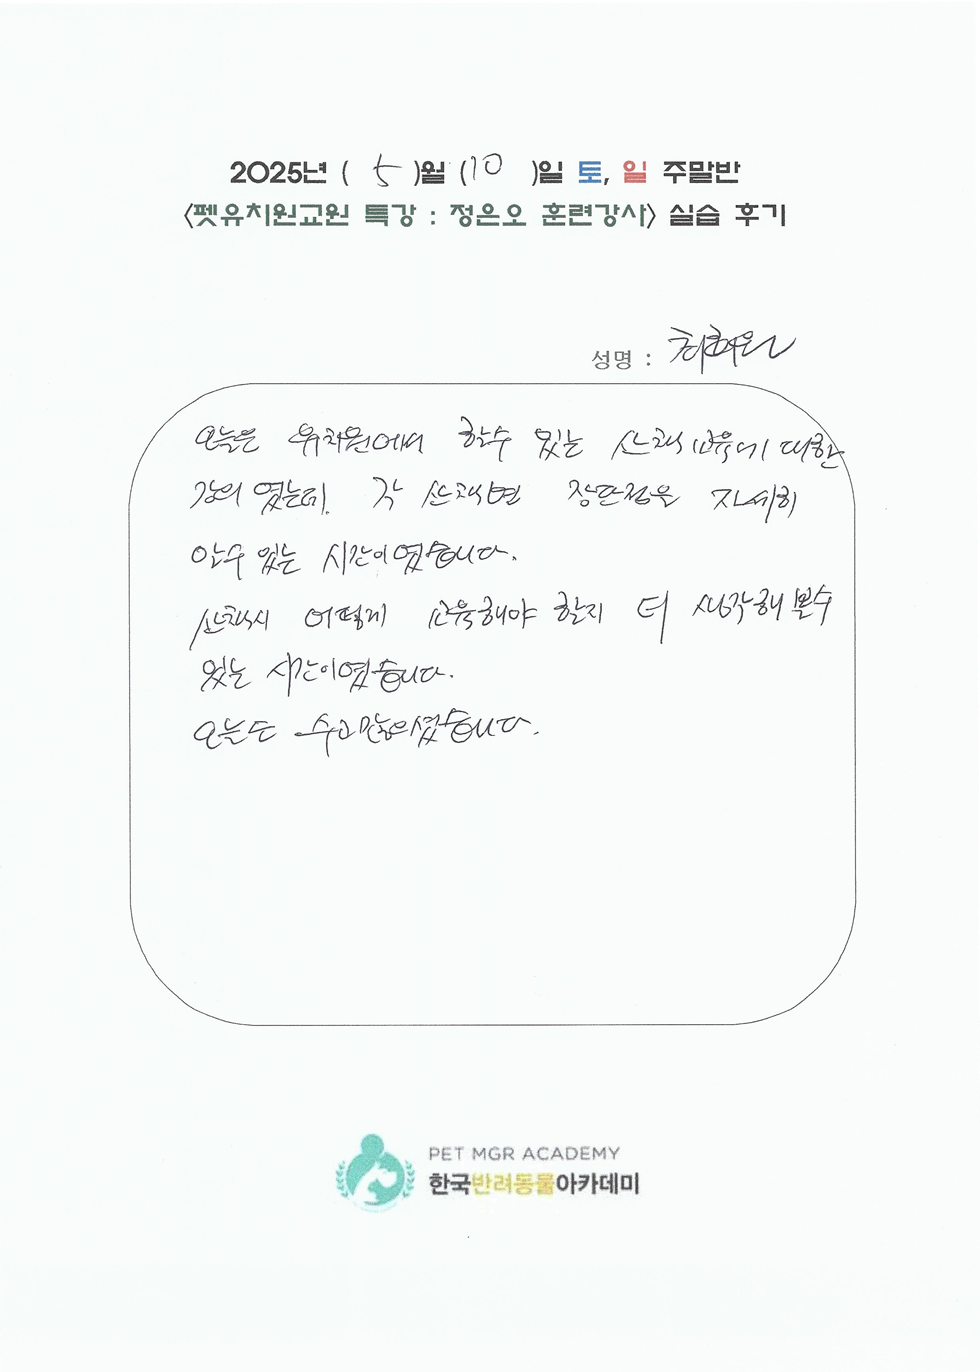 2025년 ( 5 )월 (10 )일 토, 일 주말반
<펫유치원교원 특강 : 정은오 훈련강사> 실습 후기
성명 :
오늘은 유치원에서 할수 있는 산책교육에 대한
강의 였는데. 각 산책법 장단점을 자세히
알수 있는 시간이였습니다.
산책시 어떻게 교육해야 할지 더 생각해 볼수
있는 시간이였습니다.
오늘도 수고 많으셨습니다.
PET MGR ACADEMY
한국반려동물아카데미